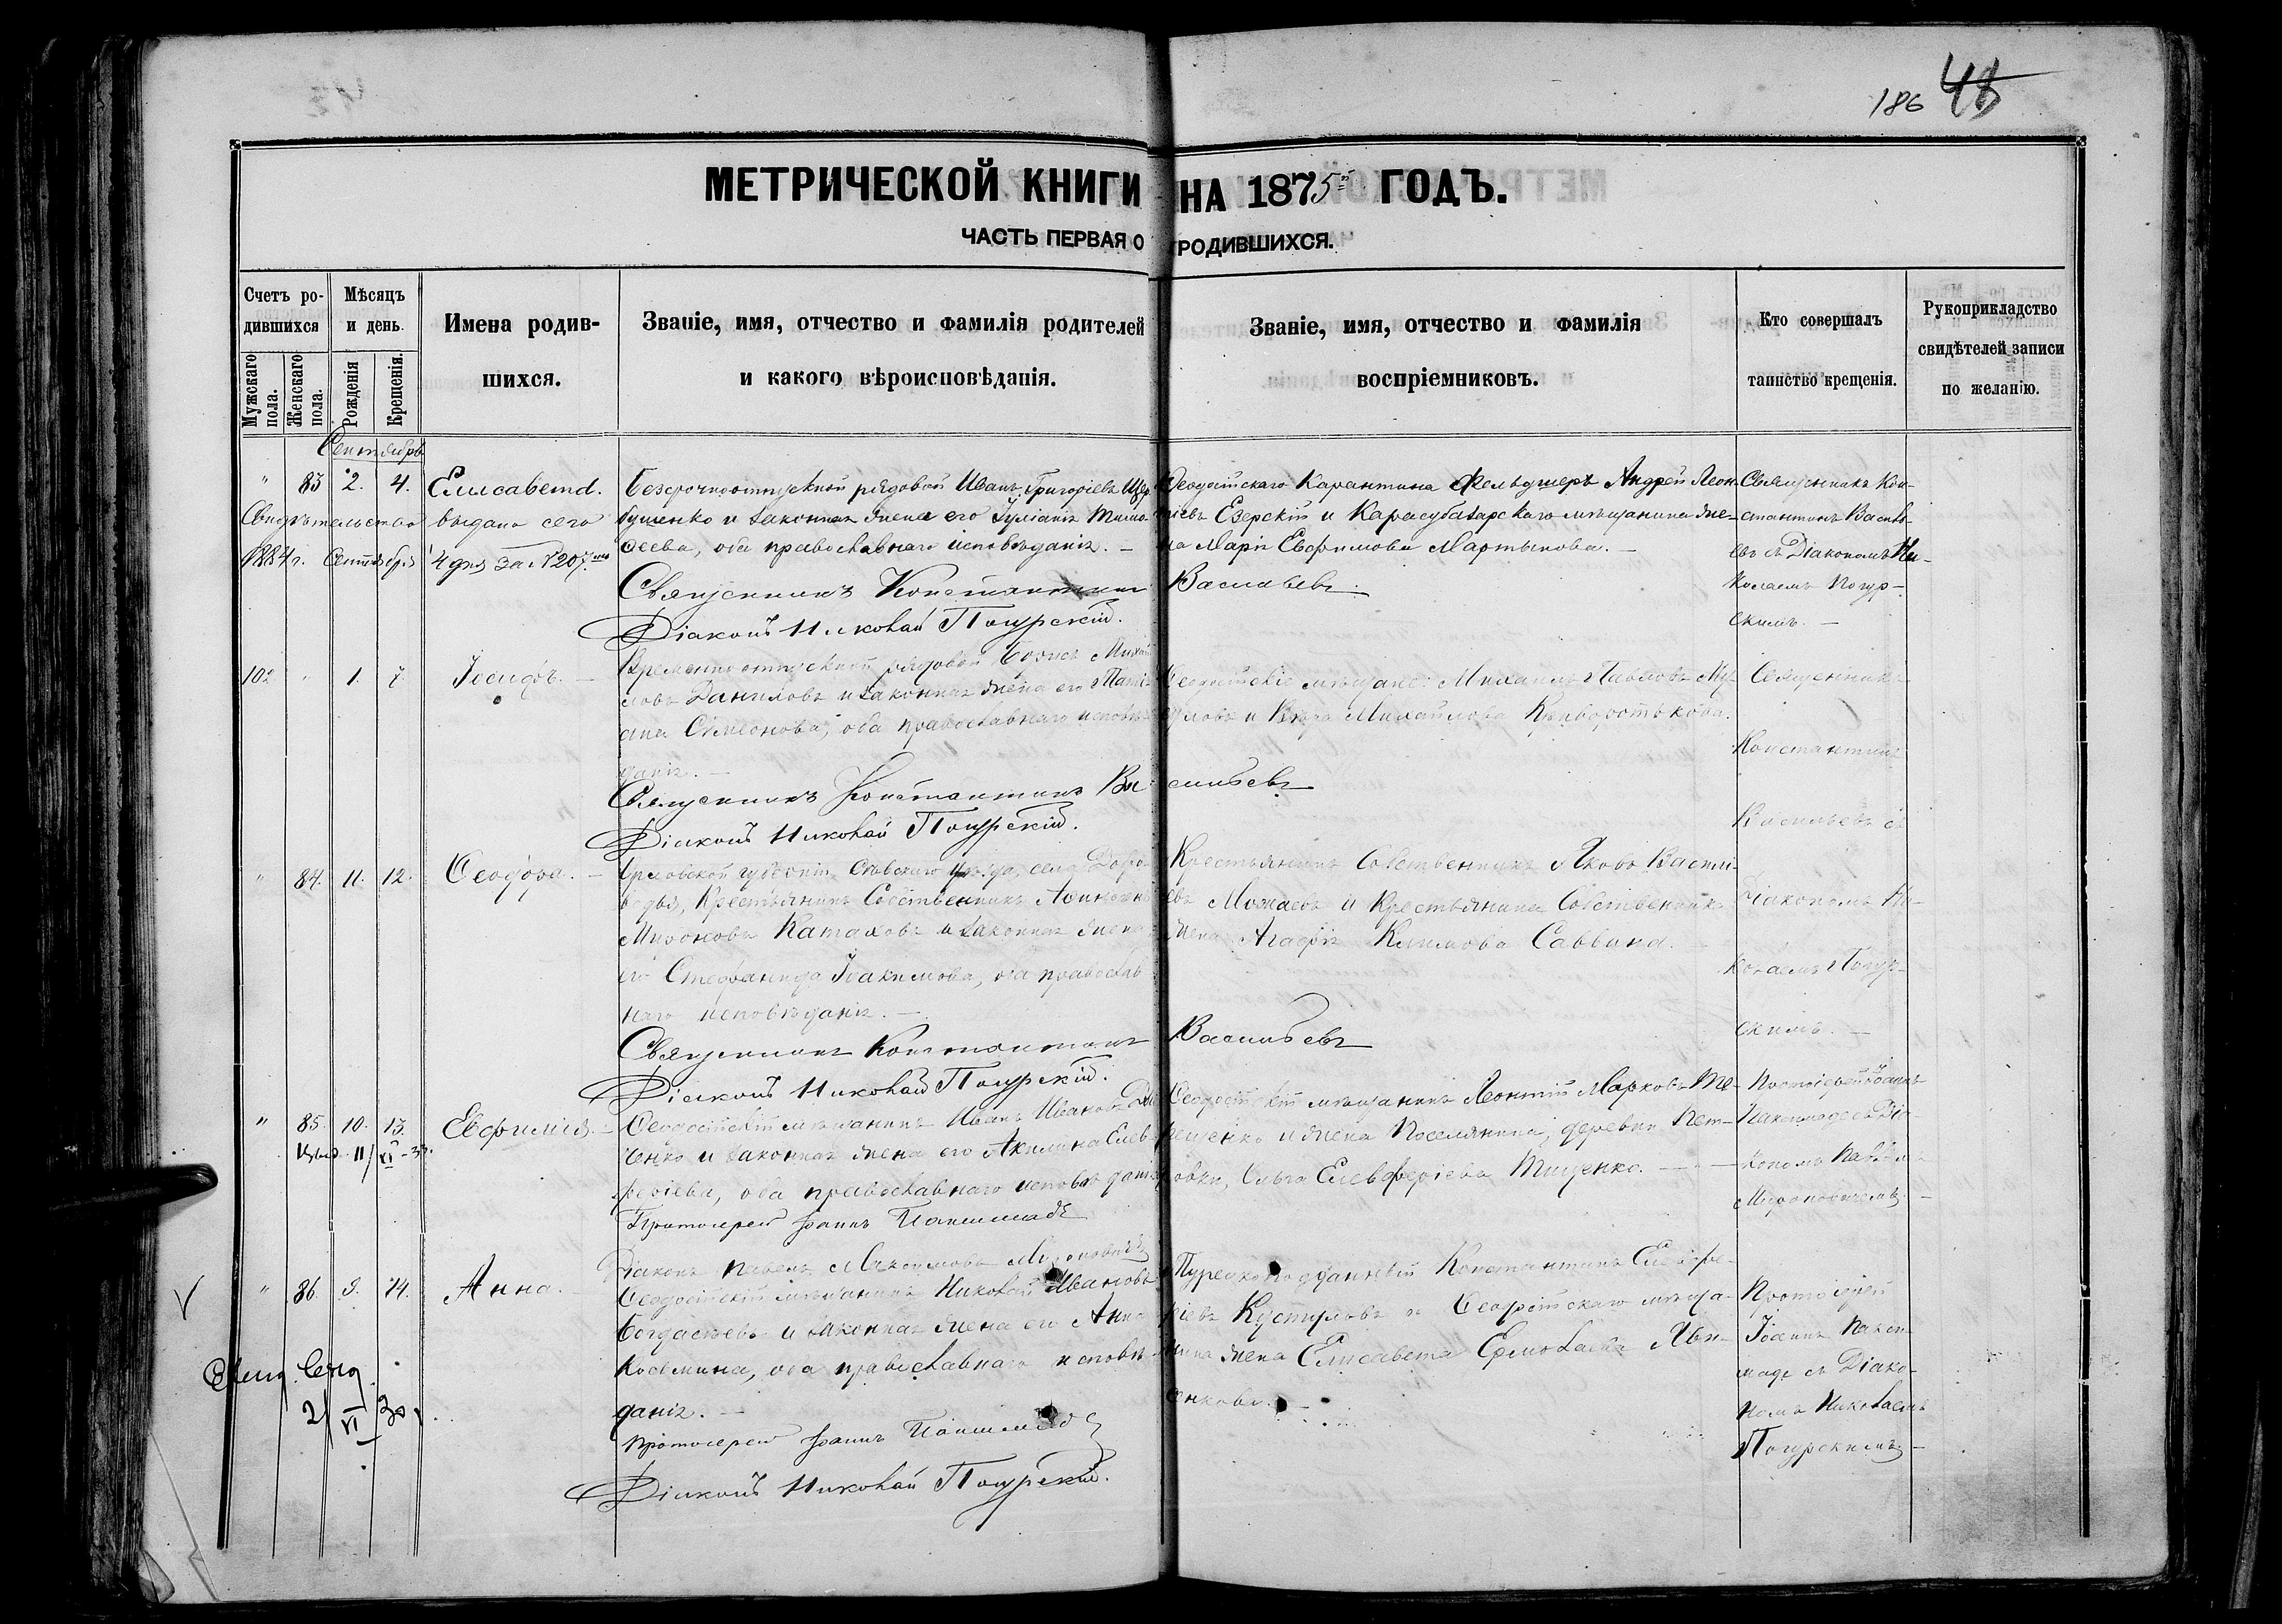 186 48
МЕТРИЧЕСКОЙ КНИГИ НА 1875й ГОДЪ.
ЧАСТЬ ПЕРВАЯ О РОДИВШИХСЯ.
Счетъ родившихся
Мужскаго пола.
Женскаго пола.
Мѣсяцъ и день.
Рожденія
Крещенія.
Имена родив-
шихся.
Званіе, имя, отчество и фамилія родителей
и какого вѣроисповѣданія.
Званіе, имя, отчество и фамилія
воспріемниковъ.
Кто совершалъ
таинство крещенія.
Рукоприкладство
свидѣтелей записи
по желанію.
Сентябрь
" 83 2. 4. Елисавета.
Свидѣтельство выдано сего
1884 г. Сентября 4 дня за №207
Безсрочноотпускной рядовой Иванъ Григорьевъ
бушенко и законная жена его Іуліанія Тимо-
ѳеева, оба православнаго исповѣданія. —
Священникъ Константинъ Васильевъ
Діаконъ Николай Погурскій.
Ѳеодосійскаго Карантина Фельдшеръ Андрей Леон-
тіевъ Езерскій и Карасубазарскаго мѣщанина же-
на Марія Евфимова Мартынова. —
Священникъ Кон-
стантинъ Василь-
евъ съ Діакономъ Ни-
колаемъ Погур-
скимъ. —
102 " 1. 7. Іосифъ. —
Временноотпускной рядовой Борисъ Михай
ловъ Даниловъ и законная жена его Тати
ана Симеонова, оба православнаго исповѣ-
данія. —
Священникъ Константинъ Васильевъ
Діаконъ Николай Погурскій.
Ѳеодосійскіе мѣщане: Михаилъ Павловъ
и Вѣра Михайлова Криворотькова.
Священникъ
Константинъ
Васильевъ съ
Діакономъ Ни-
колаемъ Погур-
скимъ. —
" 84. 11. 12. Ѳеодора. —
Орловской губерніи, Сѣвскаго уѣзда, села Добро
водья, Крестьянинъ Собственникъ
Мироновъ Катаховъ и законная жена
его Стефанида Іоакимова, оба православ
наго исповѣданія. —
Священникъ Константинъ Васильевъ
Діаконъ Николай Погурскій.
Крестьянинъ Собственникъ Яковъ Василі-
евъ Можаевъ и Крестьянина Собственника
жена Агафія Климова Саввина.
" 85. 10. 13. Евфимія. —
11/XI-33.
Ѳеодосійскій мѣщанинъ Иванъ Ивановъ
ченко и законная жена его Акилина Елев-
феріева, оба православнаго исповѣданія
Протоіерей Іоаннъ Пакшимаде
Діаконъ Павелъ Максимовъ Мироновичъ
Ѳеодосійскій мѣщанинъ Леонтій Марковъ Те-
рещенко и жена Поселянина, деревни Пет-
ровки, Ольга Елевферіева Тищенко. —
Протоіерей Іоаннъ
Пакшимаде съ Діа-
кономъ Павломъ
Мироновичемъ. —
" 86. 9. 14. Анна. —
2/XI 30.
Ѳеодосійскій мѣщанинъ Николай Ивановъ
Богдасьевъ и законная жена его Анна
Косьмина, оба православнаго исповѣ-
данія. —
Протоіерей Іоаннъ Пакшимаде
Діаконъ Николай Погурскій.
Турецкоподданный Константинъ Елевфе-
ріевъ Кустуловъ и Ѳеодосійскаго мѣща-
нина жена Елисавета Ермолаева Яцен-
кова. —
Протоіерей
Іоаннъ Пакши-
маде съ Діако-
номъ Николаемъ
Погурскимъ. —